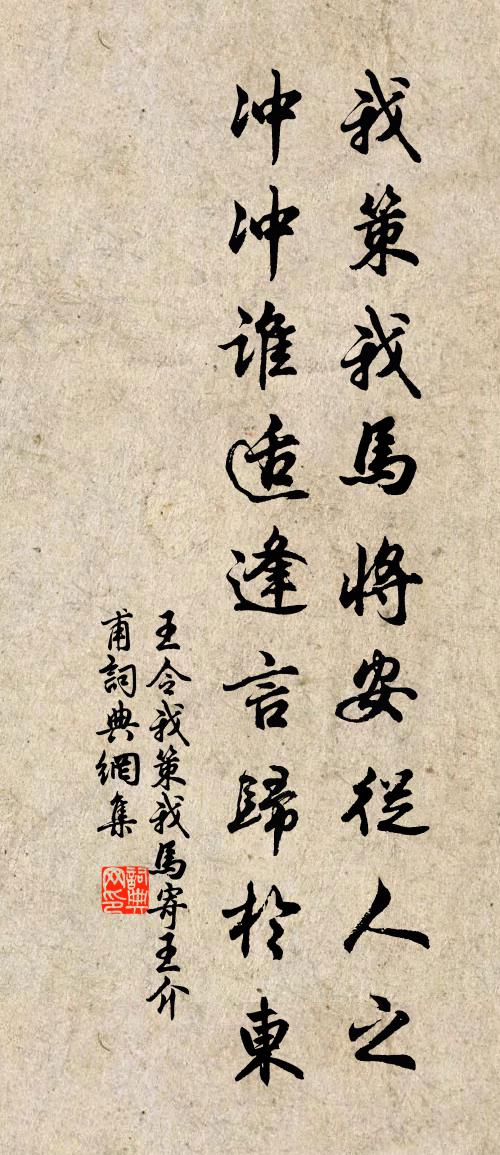 我策我馬將安從人之
冲冲誰适逢言歸於東
王令我策我馬寄王介
甫詞典網集
詞典网印